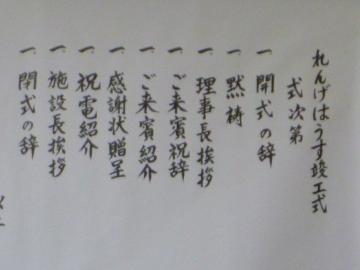 れんげはうす竣工式
式次第
一 開式の辞
一 黙祷
一 理事長挨拶
一 ご来賓祝辞
一 ご来賓紹介
一 感謝状贈呈
一 祝電紹介
一 施設長挨拶
一 閉式の辞
以上